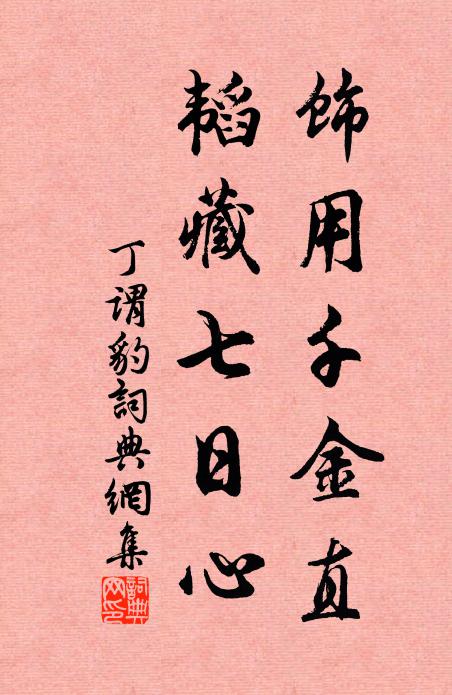 饰用千金直
韬藏七日心
丁谓豹詞典網集
詞典网印